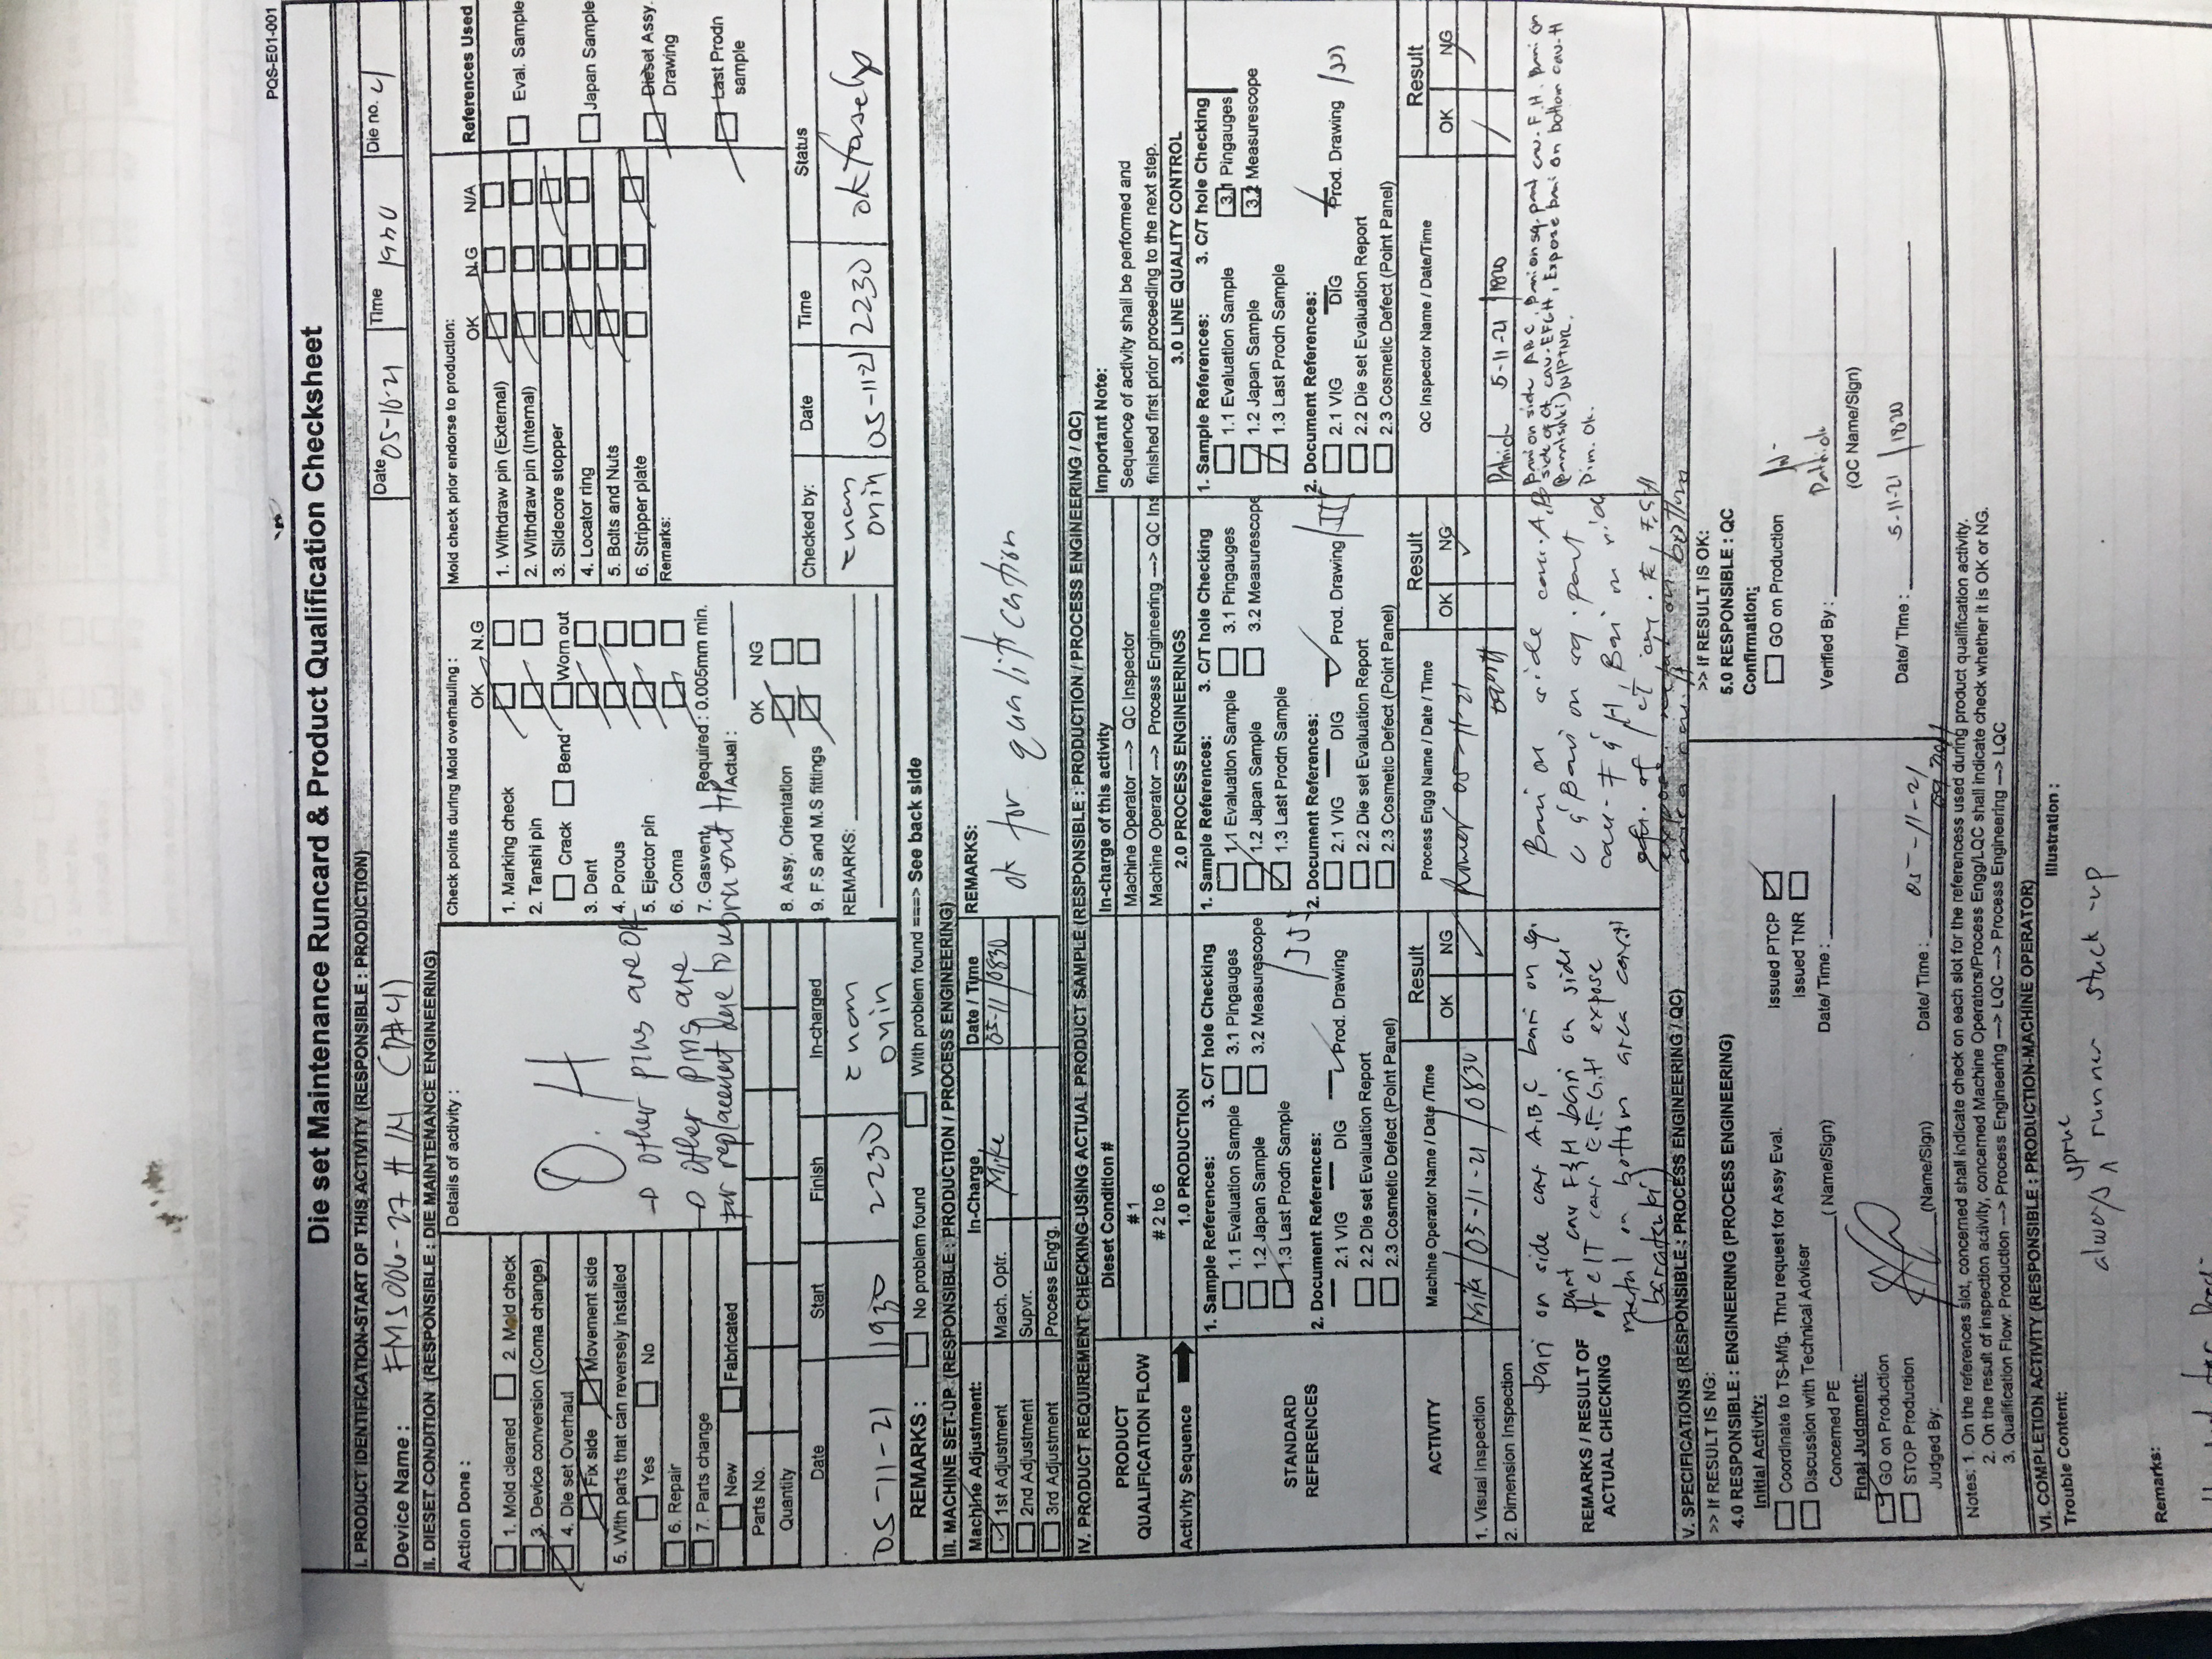 PQS-E01-001
Die set Maintenance Runcard & Product Qualification Checksheet
I. PRODUCT IDENTIFICATION-START OF THIS ACTIVITY (RESPONSIBLE : PRODUCTION)
Device Name : FMS006-27 # 1M (D#4) Date 05-10-21 Time 1930 Die no. 4
II. DIESET CONDITION (RESPONSIBLE : DIE MAINTENANCE ENGINEERING)
Action Done :
1. Mold cleaned 2. Mold check
3. Device conversion (Coma change)
4. Die set Overhaul
Fix side Movement side
5. With parts that can reversely installed
Yes No
6. Repair
7. Parts change
New Fabricated
Parts No.
Quantity
Details of activity :
O.H
other pins are ok
other pins are
for replacement due to worn out tip
Check points during Mold overhauling :
OK N.G
1. Marking check
2. Tanshi pin
Crack Bend Worn out
3. Dent
4. Porous
5. Ejector pin
6. Coma
7. Gasvent Required : 0.005mm min.
Actual :
OK NG
8. Assy. Orientation
9. F.S and M.S fittings
REMARKS:
Mold check prior endorse to production:
OK N.G N/A
1. Withdraw pin (External)
2. Withdraw pin (Internal)
3. Slidecore stopper
4. Locator ring
5. Bolts and Nuts
6. Stripper plate
Remarks:
References Used
Eval. Sample
Japan Sample
Dieset Assy. Drawing
Last Prodn sample
Date Start Finish In-charged
05-11-21 1930 2230 onin
Checked by: Date Time Status
onin 05-11-21 2230 ok
REMARKS : No problem found With problem found ===> See back side
III. MACHINE SET-UP (RESPONSIBLE : PRODUCTION / PROCESS ENGINEERING)
Machine Adjustment: In-Charge Date / Time REMARKS:
1st Adjustment Mach. Optr. Mike 05-11 /0830
2nd Adjustment Supvr.
3rd Adjustment Process Eng'g.
ok for qualification
IV. PRODUCT REQUIREMENT CHECKING-USING ACTUAL PRODUCT SAMPLE (RESPONSIBLE : PRODUCTION / PROCESS ENGINEERING / QC)
PRODUCT QUALIFICATION FLOW
Dieset Condition # In-charge of this activity
# 1 Machine Operator ---> QC Inspector
# 2 to 6 Machine Operator ---> Process Engineering ---> QC Ins
Important Note:
Sequence of activity shall be performed and
finished first prior proceeding to the next step.
Activity Sequence 1.0 PRODUCTION 2.0 PROCESS ENGINEERINGS 3.0 LINE QUALITY CONTROL
STANDARD REFERENCES
1. Sample References: 3. C/T hole Checking
1.1 Evaluation Sample 3.1 Pingauges
1.2 Japan Sample 3.2 Measurescope
1.3 Last Prodn Sample
2. Document References:
2.1 VIG DIG Prod. Drawing
2.2 Die set Evaluation Report
2.3 Cosmetic Defect (Point Panel)
1. Sample References: 3. C/T hole Checking
1.1 Evaluation Sample 3.1 Pingauges
1.2 Japan Sample 3.2 Measurescope
1.3 Last Prodn Sample
2. Document References:
2.1 VIG DIG Prod. Drawing
2.2 Die set Evaluation Report
2.3 Cosmetic Defect (Point Panel)
1. Sample References: 3. C/T hole Checking
1.1 Evaluation Sample 3.1 Pingauges
1.2 Japan Sample 3.2 Measurescope
1.3 Last Prodn Sample
2. Document References:
2.1 VIG DIG Prod. Drawing
2.2 Die set Evaluation Report
2.3 Cosmetic Defect (Point Panel)
ACTIVITY Machine Operator Name / Date /Time Result OK NG Process Engg Name / Date / Time Result OK NG QC Inspector Name / Date/Time Result OK NG
1. Visual Inspection Mike /05-11-21 /0830 05-11-21
2. Dimension Inspection Patrick 5-11-21 /1820
REMARKS / RESULT OF ACTUAL CHECKING
bari on side cav. A,B,C bari on sq.
part cav F&H bari on side
of C/T cav. E.F.G.H expose
metal on bottom area cav.H
(baratsuki)
Bari on side cav. A,B
C & Bari on sq. part
cav. F & H, Bari on side
of CT cav. E, F,G,H
expose metal on bottom
area cav.H
Bari on side ABC, Bari on sq. part cav. F.H. Bari on
side of CT cav. EFGH, Expose bari on bottom cav. H
(baratsuki) W/PTNR.
Dim. Ok.
V. SPECIFICATIONS (RESPONSIBLE : PROCESS ENGINEERING / QC)
>> If RESULT IS NG:
4.0 RESPONSIBLE : ENGINEERING (PROCESS ENGINEERING)
Initial Activity:
Coordinate to TS-Mfg. Thru request for Assy Eval. Issued PTCP
Discussion with Technical Adviser Issued TNR
Concerned PE (Name/Sign) Date/ Time :
Final Judgment:
GO on Production
STOP Production
Judged By: (Name/Sign) Date/ Time : 05-11-21
>> If RESULT IS OK:
5.0 RESPONSIBLE : QC
Confirmation:
GO on Production
Verified By : Patrick
(QC Name/Sign)
Date/ Time : 5-11-21 /1820
Notes: 1. On the references slot, concerned shall indicate check on each slot for the referencess used during product qualification activity.
2. On the result of inspection activity, concerned Machine Operators/Process Engg/LQC shall indicate check whether it is OK or NG.
3. Qualification Flow: Production ---> Process Engineering ---> LQC ---> Process Engineering ---> LQC
VI. COMPLETION ACTIVITY (RESPONSIBLE : PRODUCTION-MACHINE OPERATOR)
Trouble Content: Illustration :
always sprue runner stuck-up
Remarks:
for Prod.